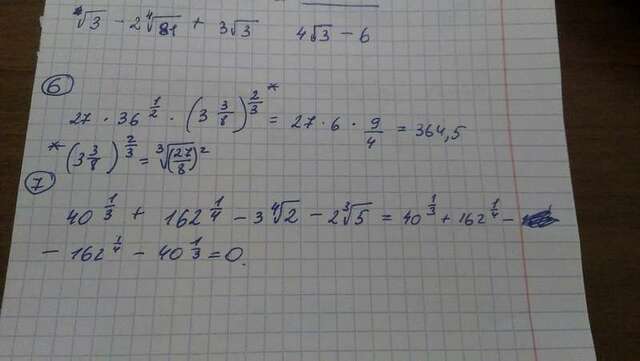 ∜3 − 2∜81 + 3√3 4√3 − 6
6
27 · 36^(1/2) · (3 3/8)^(2/3)* = 27 · 6 · 9/4 = 364,5
* (3 3/8)^(2/3) = ∛(27/8)²
7
40^(1/3) + 162^(1/4) − 3∜2 − 2∛5 = 40^(1/3) + 162^(1/4) −
− 162^(1/4) − 40^(1/3) = 0.